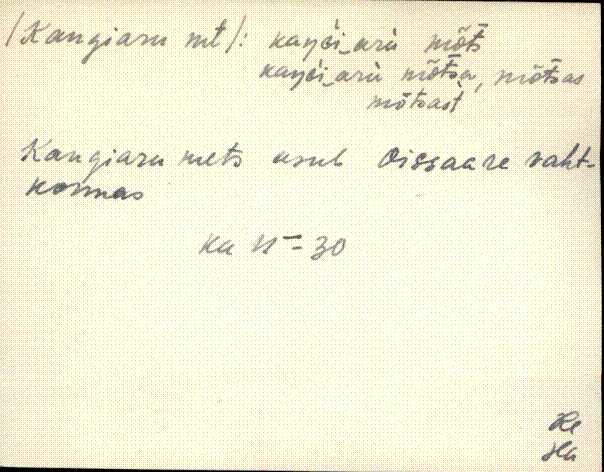 /Kangiaru mt/: kaŋɢi_aru mõts
kaŋɢi_aru mõtsa, mõtsas
mõtsast
Kangiaru mets asub Oissaare vaht-
konnas
ka N = 30